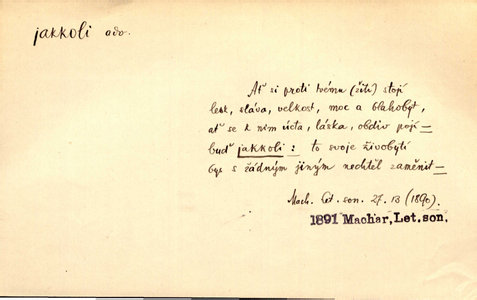 jakkoli adv.
Ať si proti tvému (žití) stojí
lesk, sláva, velkost, moc a blahobyt,
ať se k nim úcta, láska, obdiv pojí —
buď jakkoli: to svoje živobytí
bys s žádným jiným nechtěl zaměnit —
Mach. Let. son. 27. 13 (1890).
1891 Machar, Let. son.